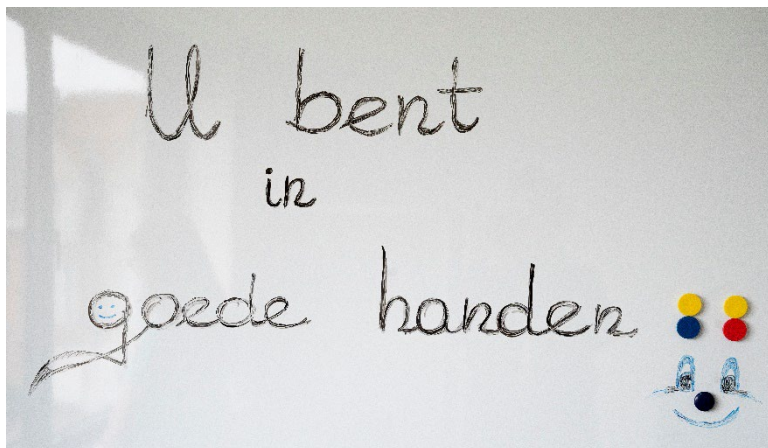 U bent
in
goede handen